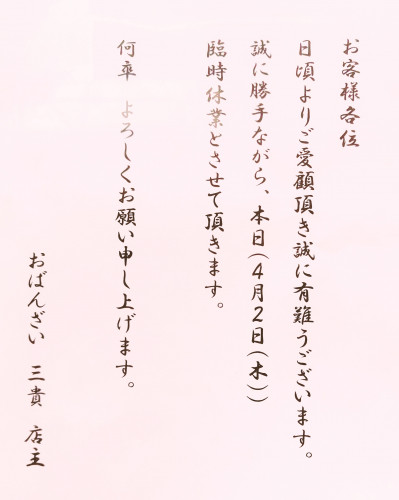 お客様各位
日頃よりご愛顧頂き誠に有難うございます。
誠に勝手ながら、本日(4月2日(木))
臨時休業とさせて頂きます。
何卒 よろしくお願い申し上げます。
おばんざい 三貴 店主